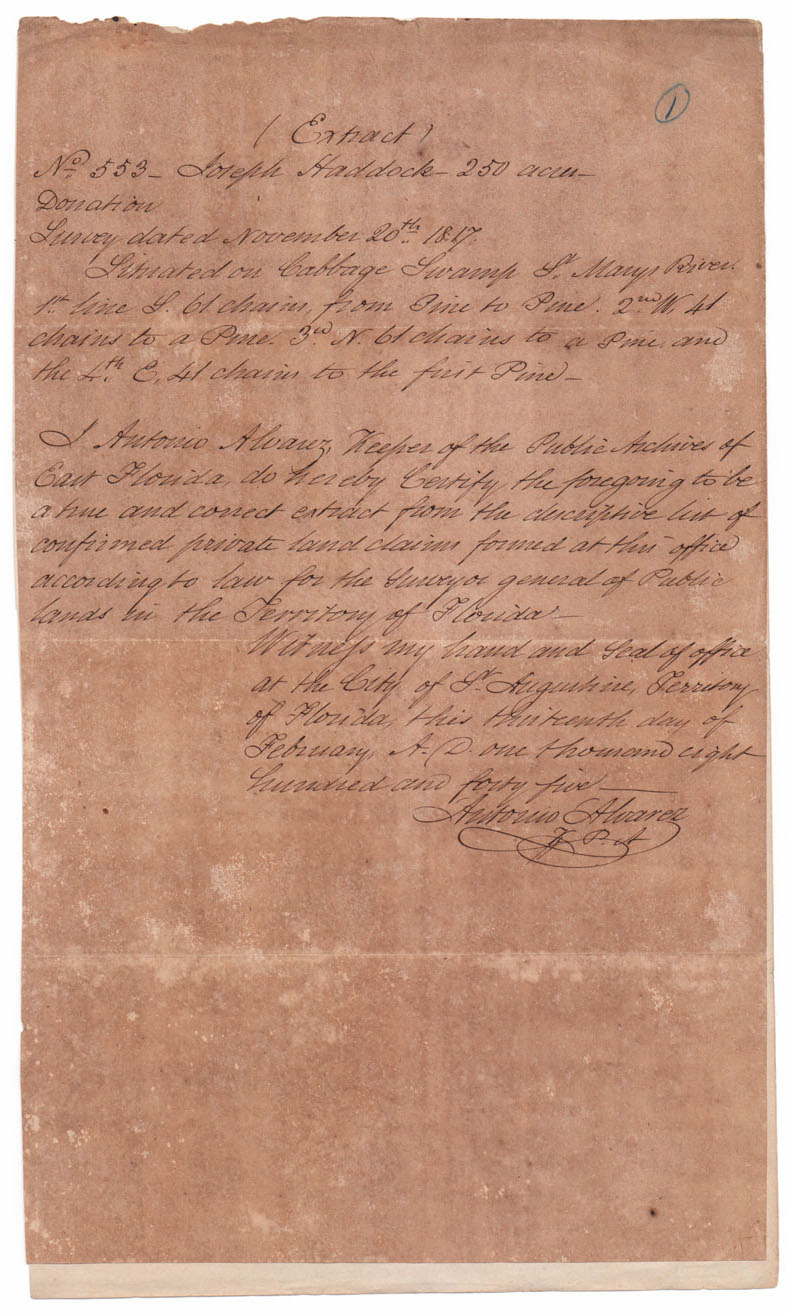 1
( Extract )
No. 553 – Joseph Haddock – 250 acres –
Donation
Survey dated November 20th. 1817.
Situated on Cabbage Swamp St. Marys River.
1st. line S. 61 chains, from Pine to Pine. 2nd W. 41
chains to a Pine. 3rd N. 61 chains to a Pine and
the 4th. E. 41 chains to the first Pine –
I Antonio Alvarez, Keeper of the Public Archives of
East Florida, do hereby Certify, the foregoing to be
a true and correct extract from the descriptive list of
confirmed private land claims formed at this office
according to law for the Surveyor general of Public
lands in the Territory of Florida –
Witness my hand and Seal of office
at the City of St. Augustine, Territory
of Florida, this thirteenth day of
February, A. D. one thousand eight
hundred and forty five –
Antonio Alvarez
K. P. A